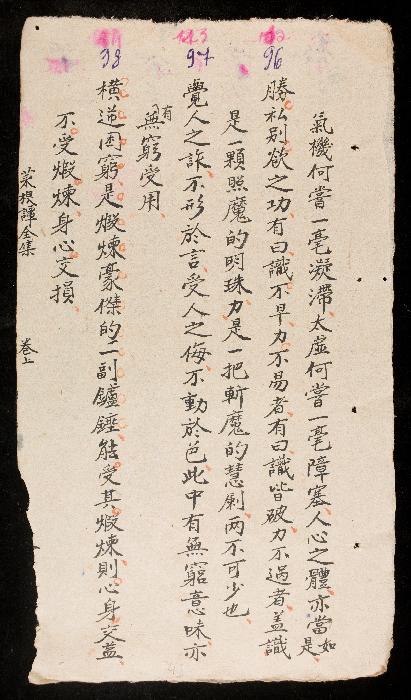 氣機何嘗一毫凝滯太虛何嘗一毫障塞人心之體亦當如是
96
勝私別欲之功有曰識不早力不易者有曰識皆破力不過者盖識
是一顆照魔的明珠力是一把斬魔的慧劍兩不可少也
97
覺人之詐不形於言受人之侮不動於色此中有無窮意味亦
有無窮受用
98
橫逆困窮是煆煉豪傑的二副鑪錘能受其煆煉則心身交益
不受煆煉身心交損
菜根譚全集 卷上